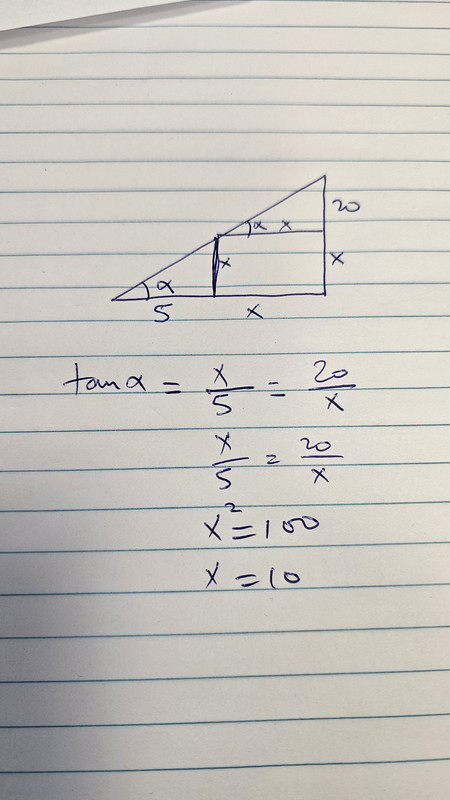 20
α x
x
x
α
5
x
tan α = x/5 = 20/x
x/5 = 20/x
x² = 100
x = 10